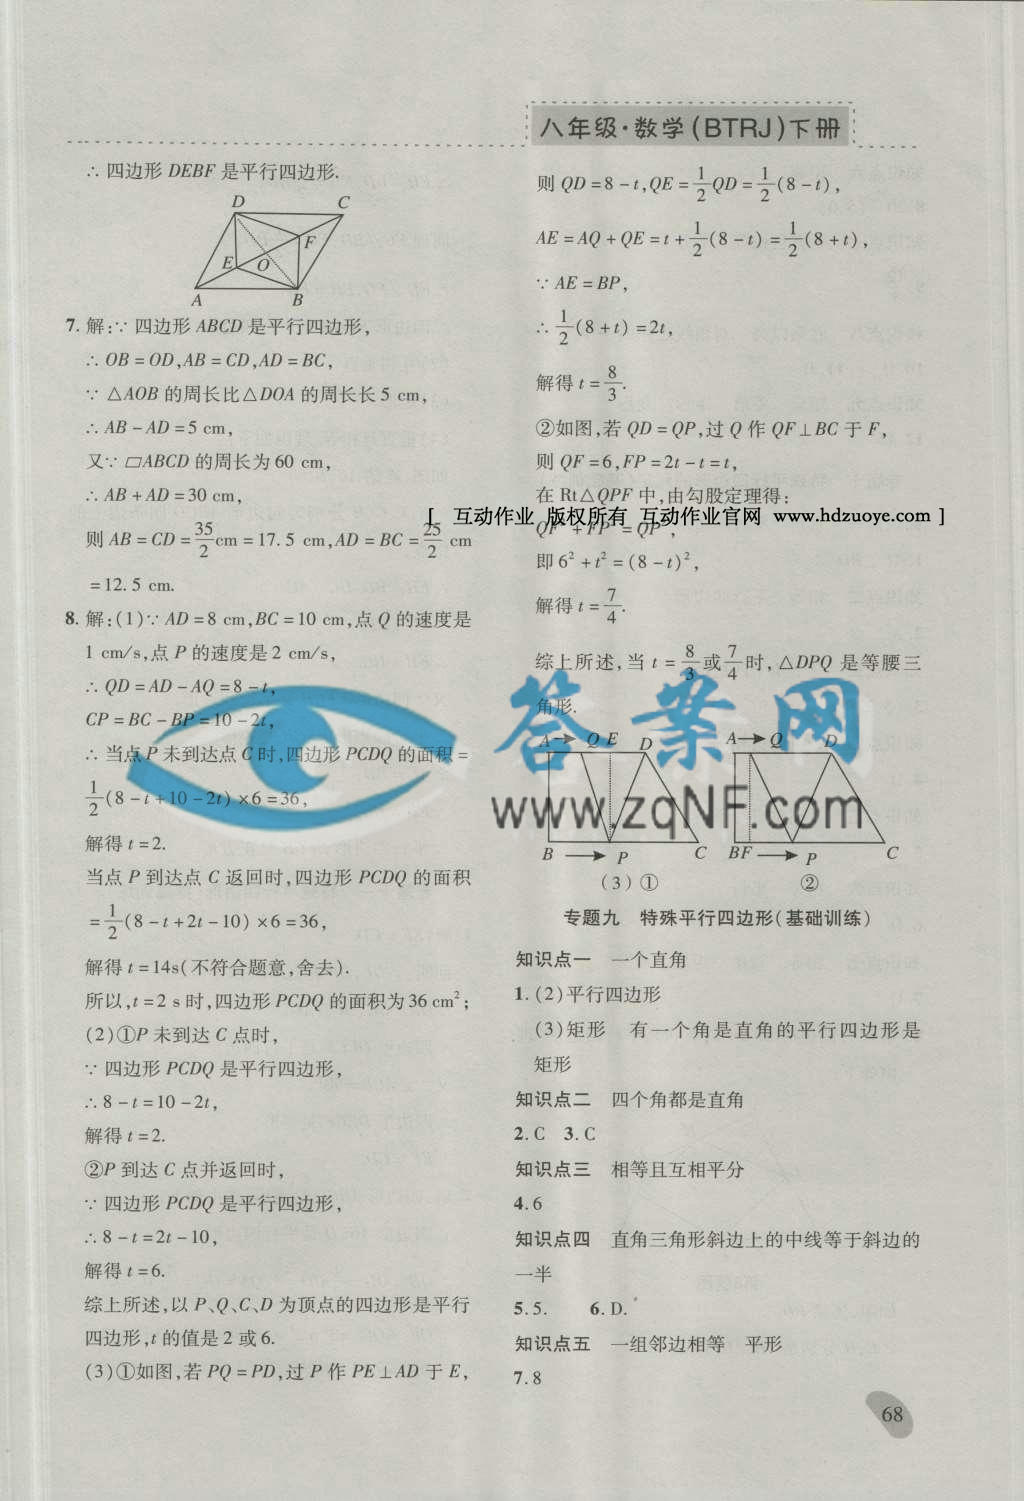 八年级·数学(BTRJ)下册
∴ 四边形 DEBF 是平行四边形.
D C
F
E O
A B
7. 解:∵ 四边形 ABCD 是平行四边形,
∴ OB=OD,AB=CD,AD=BC,
∵ △AOB 的周长比△DOA 的周长长 5 cm,
∴ AB-AD=5 cm,
又∵ ▱ABCD 的周长为 60 cm,
∴ AB+AD=30 cm,
则 AB=CD=35/2 cm=17.5 cm,AD=BC=25/2 cm
=12.5 cm.
8. 解:(1)∵ AD=8 cm,BC=10 cm,点 Q 的速度是
1 cm/s,点 P 的速度是 2 cm/s,
∴ QD=AD-AQ=8-t,
CP=BC-BP=10-2t,
∴ 当点 P 未到达点 C 时,四边形 PCDQ 的面积=
1/2(8-t+10-2t)×6=36,
解得 t=2.
当点 P 到达点 C 返回时,四边形 PCDQ 的面积
=1/2(8-t+2t-10)×6=36,
解得 t=14s(不符合题意,舍去).
所以,t=2 s 时,四边形 PCDQ 的面积为 36 cm²;
(2)①P 未到达 C 点时,
∵ 四边形 PCDQ 是平行四边形,
∴8-t=10-2t,
解得 t=2.
②P 到达 C 点并返回时,
∵ 四边形 PCDQ 是平行四边形,
∴8-t=2t-10,
解得 t=6.
综上所述,以 P、Q、C、D 为顶点的四边形是平行
四边形,t 的值是 2 或 6.
(3)①如图,若 PQ=PD,过 P 作 PE⊥AD 于 E,
则 QD=8-t,QE=1/2QD=1/2(8-t),
AE=AQ+QE=t+1/2(8-t)=1/2(8+t),
∵ AE=BP,
∴ 1/2(8+t)=2t,
解得 t=8/3.
②如图,若 QD=QP,过 Q 作 QF⊥BC 于 F,
则 QF=6,FP=2t-t=t,
在 Rt△QPF 中,由勾股定理得:
[ 互动作业 版权所有 互动作业官网 www.hdzuoye.com ]
QF²+FP²=QP²,
即 6²+t²=(8-t)²,
解得 t=7/4.
综上所述,当 t=8/3或7/4时,△DPQ 是等腰三
角形.
答案网
www.zqNF.com
A Q E D A Q D
B P C BF P C
(3)① ②
专题九 特殊平行四边形(基础训练)
知识点一 一个直角
1. (2)平行四边形
(3)矩形 有一个角是直角的平行四边形是
矩形
知识点二 四个角都是直角
2. C 3. C
知识点三 相等且互相平分
4. 6
知识点四 直角三角形斜边上的中线等于斜边的
一半
5. 5. 6. D.
知识点五 一组邻边相等 平形
7. 8
68